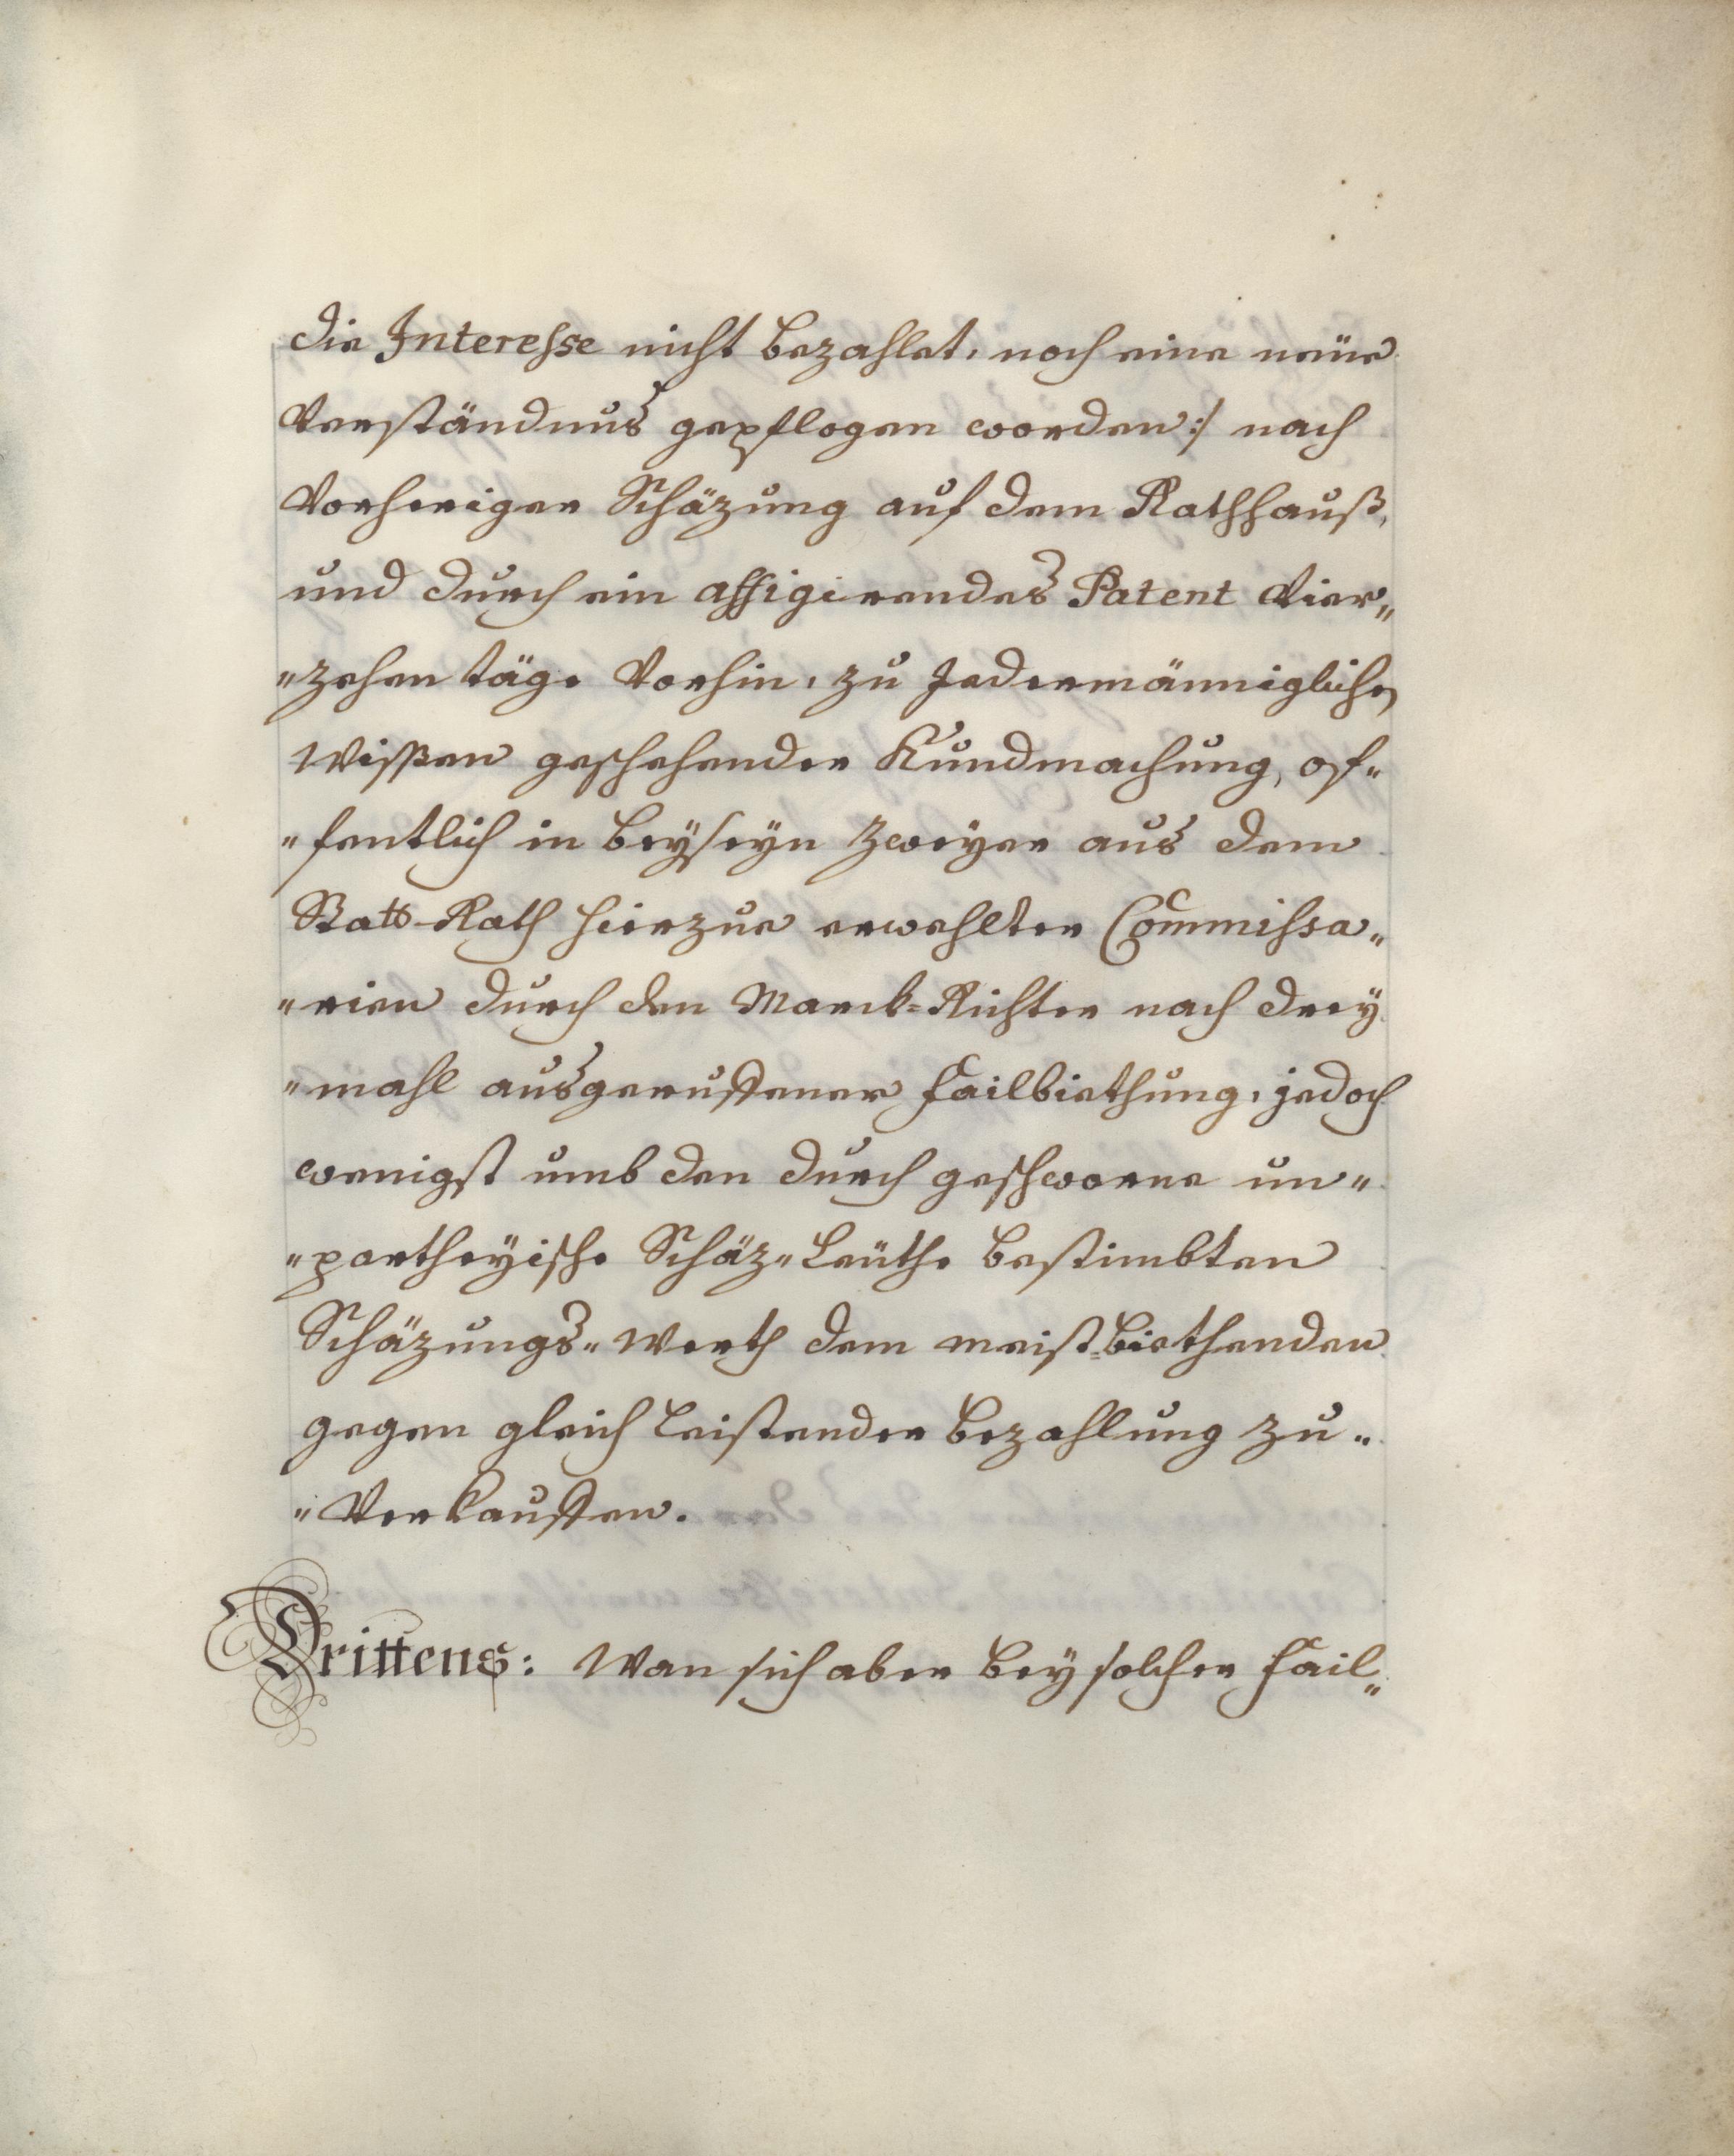 die Interesse nicht bezahlet, noch eine neüe
Verständnus gepflogen worden :/ nach
Vorheriger Schäzung auf dem Rathhauß,
und durch ein affigirendes Patent Vier„
„zehen täge Vorhin, zu Jedermänniglichen
Wissen geschehender Kundmachung, of„
„fentlich in beÿseÿn zweÿer aus dem
Statt-Rath hierzue erwehlter Commissa„
„rien durch den Marck=Richter nach dreÿ
„mahl ausgeruffener Failbiethung, jedoch
wenigst umb den durch geschworne un„
„partheÿische Schäz„Leüthe bestimbten
Schäzungs„Werth dem meist=biethenden
gegen gleich leistender bezahlung zu„
„Verkauffen.
Drittens: Wan sich aber beÿ solcher Fail„